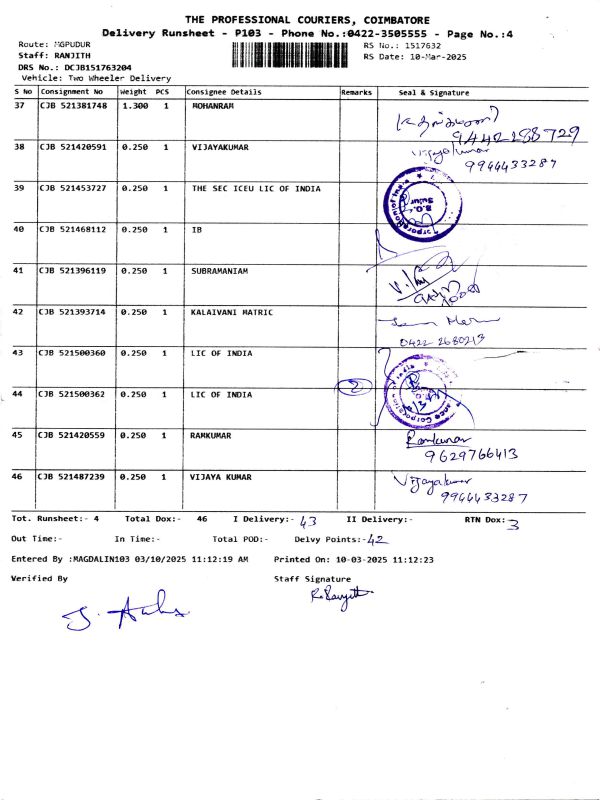 THE PROFESSIONAL COURIERS, COIMBATORE
Delivery Runsheet - P103 - Phone No.:0422-3505555 - Page No.:4
Route: MGPUDUR RS No.: 1517632
Staff: RANJITH RS Date: 10-Mar-2025
DRS No.: DCJB151763204
Vehicle: Two Wheeler Delivery
S No Consignment No Weight PCS Consignee Details Remarks Seal & Signature
37 CJB 521381748 1.300 1 MOHANRAM
9442288729
38 CJB 521420591 0.250 1 VIJAYAKUMAR Vijayakumar
9944433287
39 CJB 521453727 0.250 1 THE SEC ICEU LIC OF INDIA
40 CJB 521468112 0.250 1 IB
41 CJB 521396119 0.250 1 SUBRAMANIAM
42 CJB 521393714 0.250 1 KALAIVANI MATRIC
0422 2680213
43 CJB 521500360 0.250 1 LIC OF INDIA
44 CJB 521500362 0.250 1 LIC OF INDIA 2
45 CJB 521420559 0.250 1 RAMKUMAR Ramkumar
9629766413
46 CJB 521487239 0.250 1 VIJAYA KUMAR Vijayakumar
9944433287
Tot. Runsheet:- 4 Total Dox:- 46 I Delivery:- 43 II Delivery:- RTN Dox: 3
Out Time:- In Time:- Total POD:- Delvy Points:- 42
Entered By :MAGDALIN103 03/10/2025 11:12:19 AM Printed On: 10-03-2025 11:12:23
Verified By Staff Signature